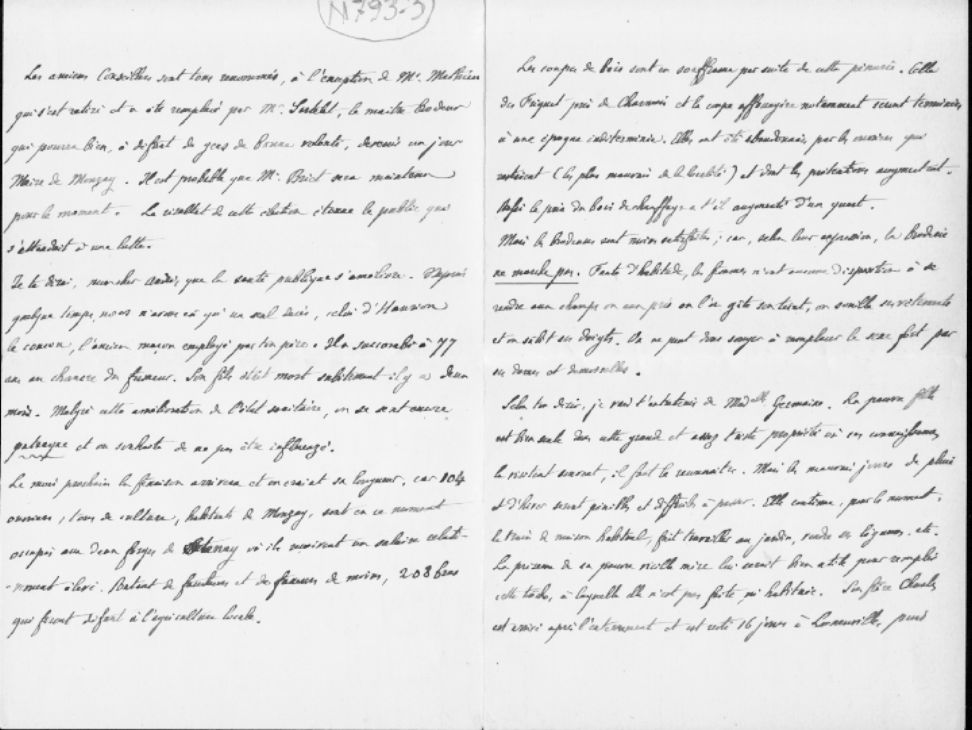 N793-3
Les anciens Conseillers sont tous renommés, à l'exception de Mr. Mathieu
qui s'est retiré et a été remplacé par Mr. le maître Brodeur
qui pourra bien, à défaut de gens de bonne volonté, devenir un jour
Maire de Mouzay. Il est probable que Mr. Briet sera maintenu
pour le moment. Le résultat de cette élection étonne le public qui
s'attendait à une lutte.
Je te dirai, mon cher André, que la santé publique s'améliore. Depuis
quelque temps, nous n'avons eu qu'un seul décès, celui d'
le , l'ancien maçon employé par ton père. Il a succombé à 77
ans au chancre du fumeur. Son fils était mort subitement il y a deux
mois. Malgré cette amélioration de l'état sanitaire, on se sent encore
patraque et on souhaite de ne pas être influenzé.
Le mois prochain la fenaison arrivera et on craint sa longueur, car 104
ouvriers, tous de culture, habitants de Mouzay, sont en ce moment
occupés aux deux forges de Stenay où ils reçoivent un salaire relati-
-vement élevé. Autant de faucheurs et de faneuses de moins, 208 bras
qui feront défaut à l'agriculture locale.
Les coupes de bois sont en souffrance par suite de cette pénurie. Celle
du près de Charmois et la coupe affouagère notamment seront terminées
à une époque indéterminée. Elles ont été abandonnées par les ouvriers qui
restaient (les plus mauvais de la localité) et dont les prétentions augmentent.
Aussi le prix du bois de chauffage a t'il augmenté d'un quart.
Mais les brodeuses sont moins satisfaites; car, selon leur expression, la broderie
ne marche pas. Faute d'habitude, les femmes n'ont aucune disposition à se
rendre aux champs ou aux prés où l'on gâte son teint, on souille ses vêtements
et on salit ses doigts. On ne peut donc songer à remplacer le sexe fort par
ces dames et demoiselles.
Selon ton désir, je vais t'entretenir de Madelle Germaine. La pauvre fille
est bien seule dans cette grande et assez triste propriété où ses connaissances
la visitent souvent, il faut le reconnaître. Mais les mauvais jours de pluie
et d'hiver seront pénibles et difficiles à passer. Elle continue, pour le moment,
le train de maison habituel, fait travailler au jardin, vendre ses légumes. etc.
La présence de sa pauvre vieille mère lui serait bien utile pour remplir
cette tâche, à laquelle elle n'est pas faite, ni habituée. Son frère Charles
est arrivé après l'enterrement et est resté 16 jours à Luneville, puis